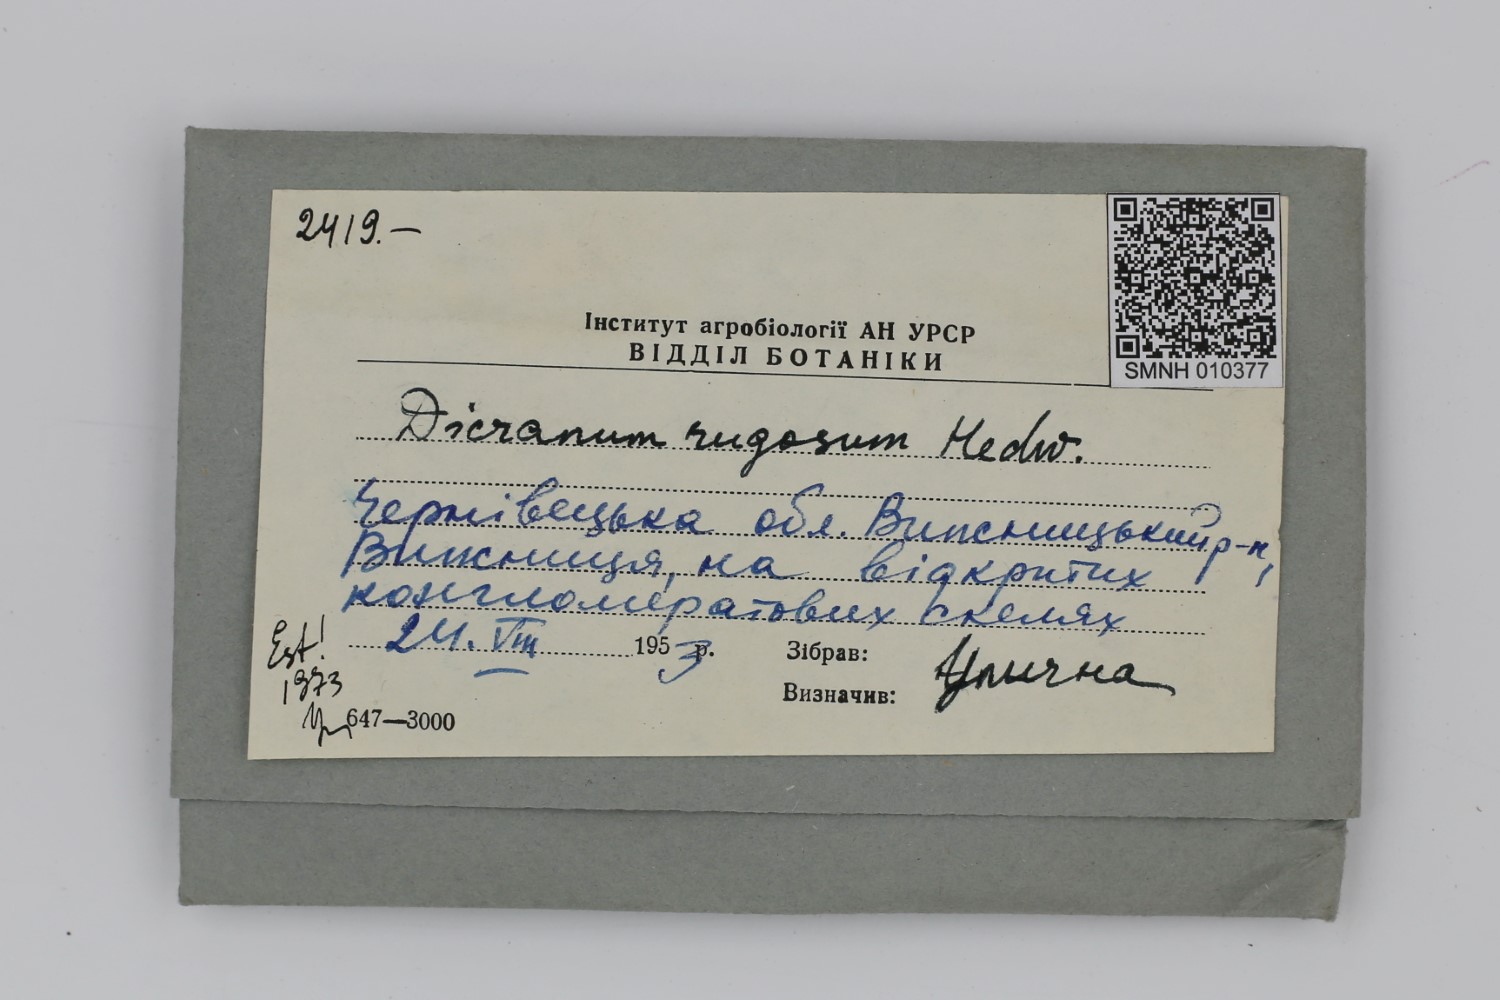 2419.—
SMNH 010377
Інститут агробіології АН УРСР
ВІДДІЛ БОТАНІКИ
Dicranum rugosum Hedw.
Чернівецька обл. Вижницький р-н,
Вижниця, на відкритих
конгломератових скелях
24. VIII 1953 р.
Зібрав:
Визначив:
Улична
Est!
1973
647—3000